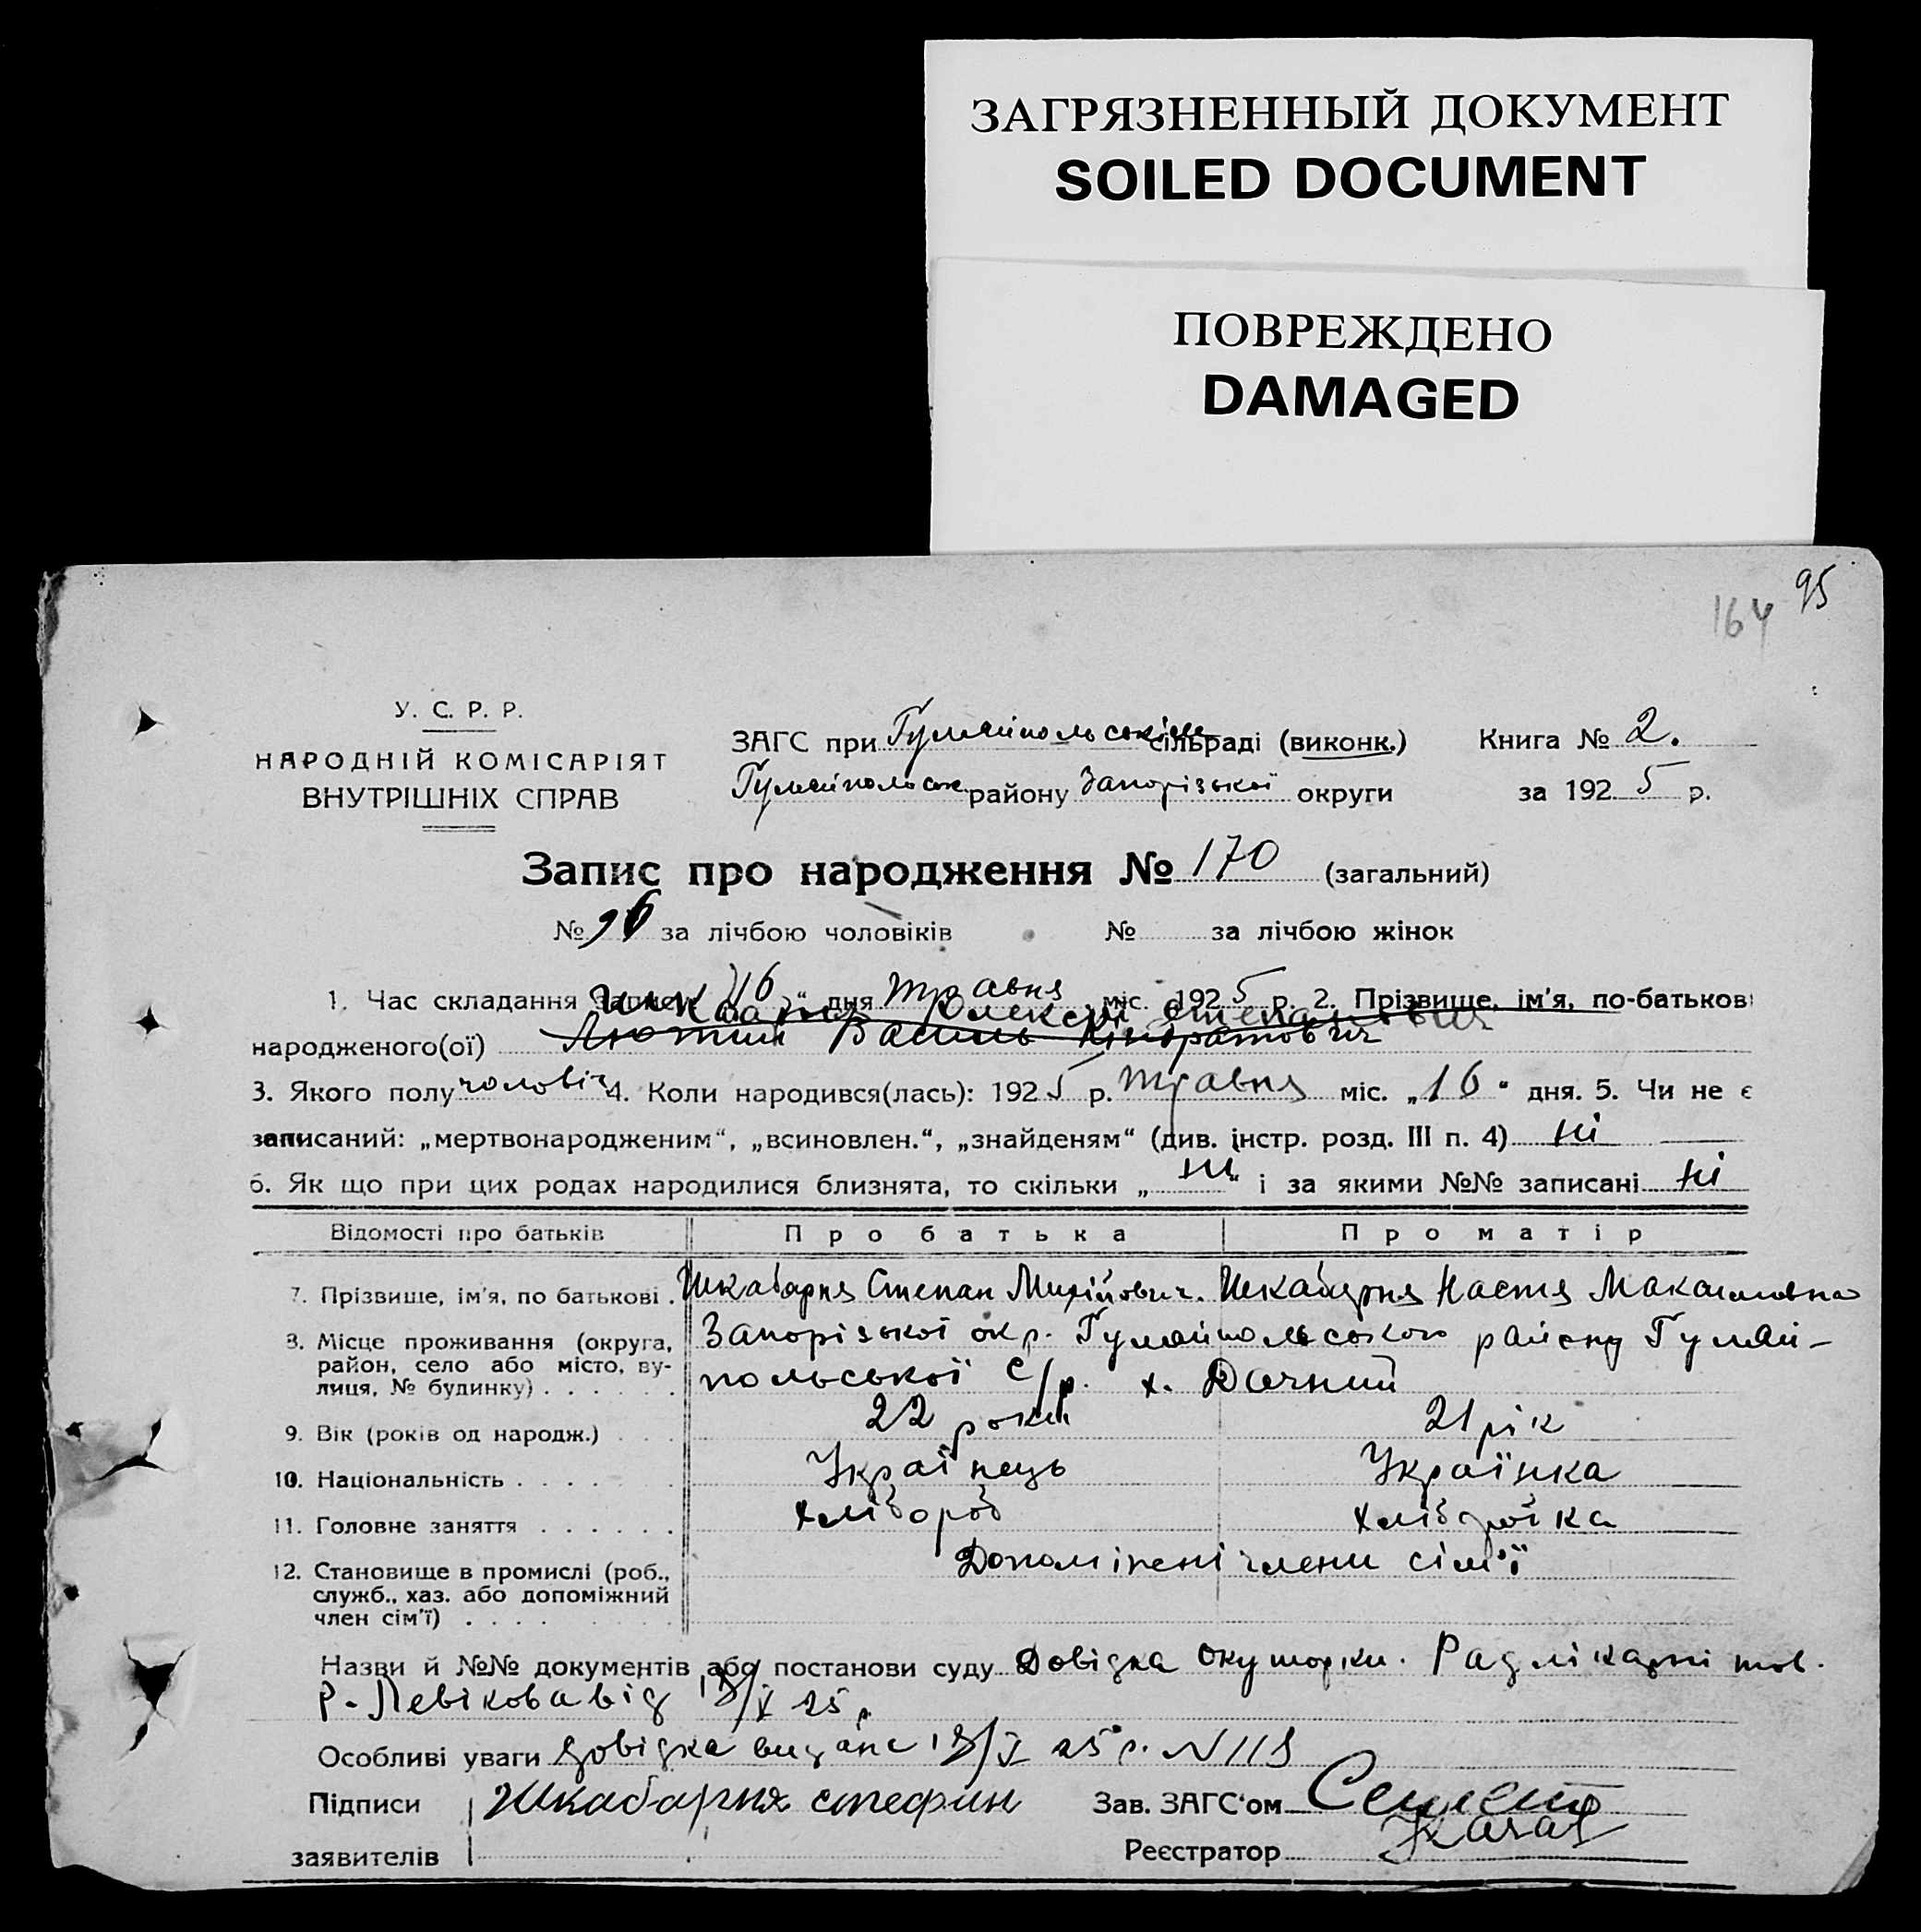 ЗАГРЯЗНЕННЫЙ ДОКУМЕНТ
SOILED DOCUMENT
ПОВРЕЖДЕНО
DAMAGED
95
164
У. С. Р. Р.
НАРОДНІЙ КОМІСАРІЯТ
ВНУТРІШНІХ СПРАВ
ЗАГС при сільраді (виконк.)
району Запорізької округи
Книга № 2.
за 1925 р.
Запис про народження № 170 (загальний)
№ 96 за лічбою чоловіків № за лічбою жінок
1. Час складання запису „16“ дня травня міс. 1925 р. 2. Прізвище, ім'я, по-батькові
Шкабарня Олексій Степанович
народженого(ої) Лютий Василь Кіндратович
3. Якого полу чоловіч 4. Коли народився(лась): 1925 р. травня міс. „16“ дня. 5. Чи не є
записаний: „мертвонародженим“, „всиновлен.“, „знайденям“ (див. інстр. розд. III п. 4) ні
6. Як що при цих родах народилися близнята, то скільки „ні“ і за якими №№ записані ні
Відомості про батьків Про батька Про матір
7. Прізвище, ім'я, по батькові . Шкабарня Степан Шкабарня Настя
8. Місце проживання (округа, район, село або місто, вулиця, № будинку) . . . . . . Запорізької окр. району
польської с/р. х. Дачний
9. Вік (років од народж.) . . . 22 роки 21 рік
10. Національність . . . . . . Українець Українка
11. Головне заняття . . . . . . хлібороб хліборобка
12. Становище в промислі (роб., служб., хаз. або допоміжний член сім'ї) . . . . члени сім'ї
Назви й №№ документів або постанови суду Довідка Радлікарні тов.
Р. Левікова від 18/V 25 р.
Особливі уваги довідка видана 18/V 25 р. N 119
Підписи Шкабарня стефан Зав. ЗАГС'ом
заявителів Реєстратор